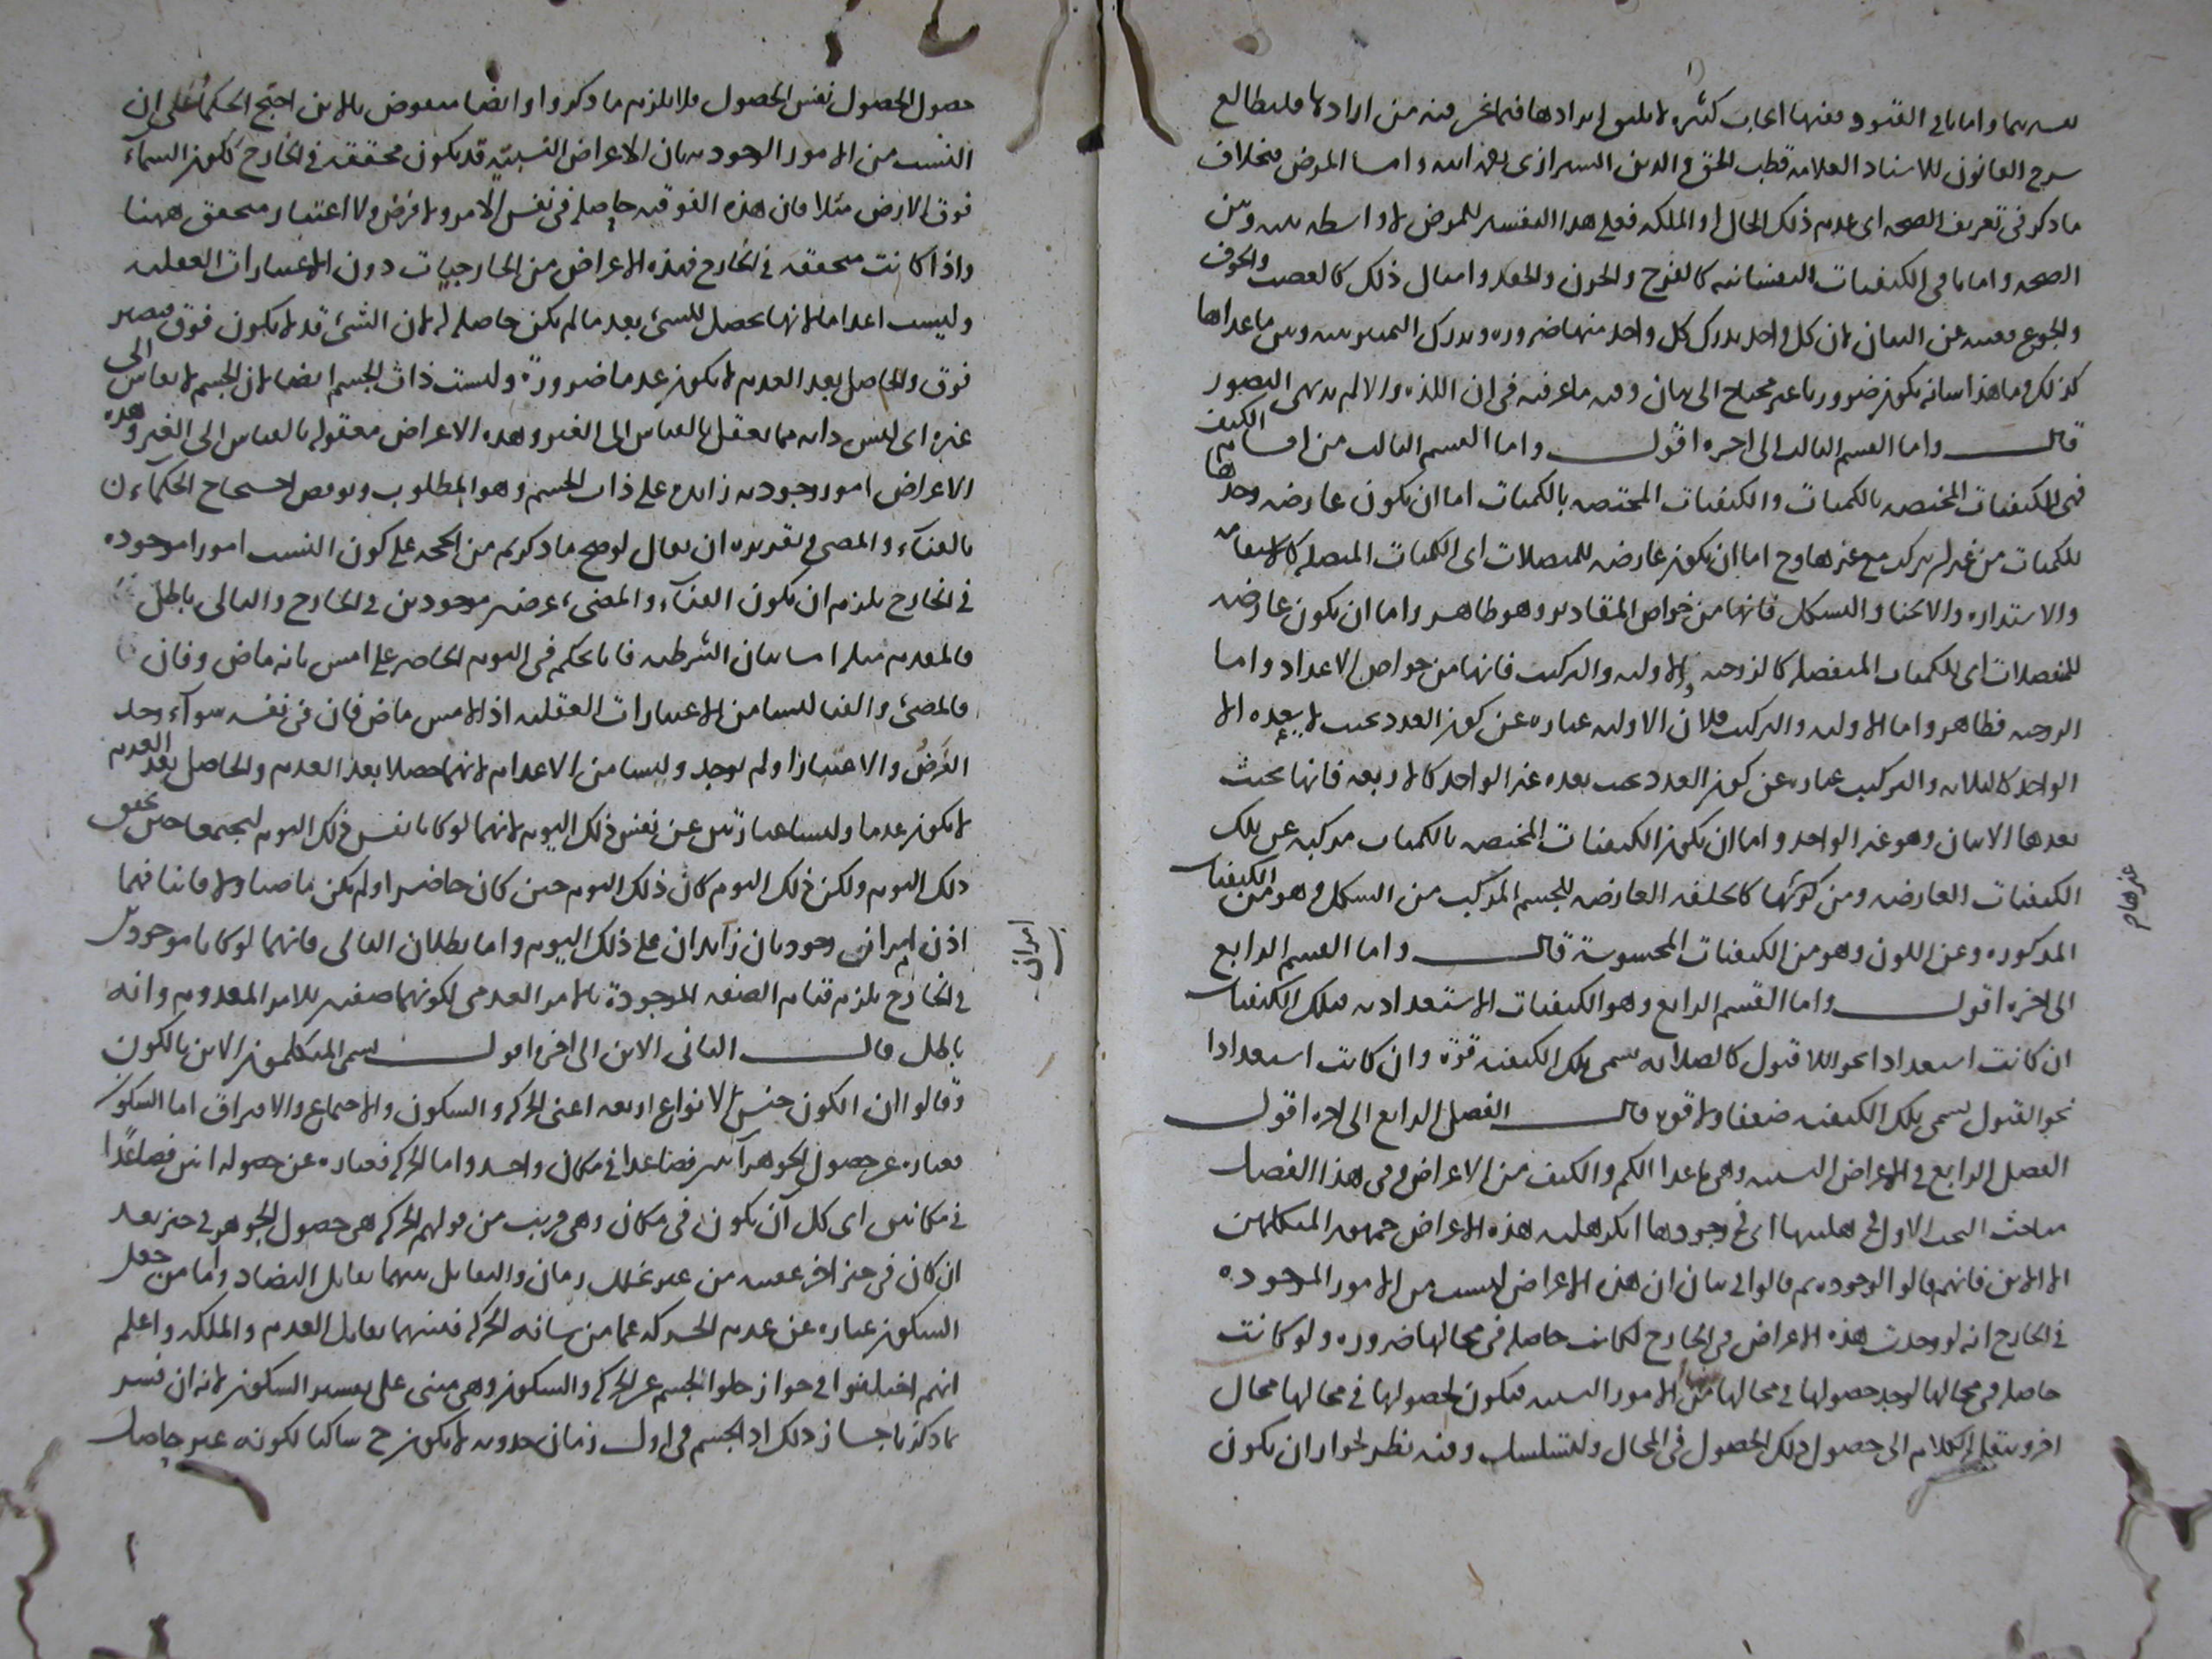 واما باقي القيود ففيها ابحاث كثيرة لا يليق ايرادها فيما نحن فيه من ارادها فليطالع
شرح القانون للاستاد العلامة قطب الحق والدين الشيرازي رحمه الله واما المرض فبخلاف
ما ذكر في تعريف الصحة اى عدم ذلك الحال او الملكة فعلى هذا التفسير للمرض لا واسطة بينه وبين
الصحة واما باقي الكيفيات النفسانية كالفرح والحزن والحقد وامثال ذلك كالغضب والخوف
والجوع فغنية عن البيان لان كل واحد يدرك كل واحد منها ضرورة ويدرك التمييز بينه وبين ما عداها
كذلك وما هذا شانه يكون ضروريا غير محتاج الى بيان وفيه ما عرفته في ان اللذة والالم بديهي التصور
قال واما القسم الثالث الى اخره اقول واما القسم الثالث من اقسام الكيف
فهى الكيفيات المختصة بالكميات والكيفيات المختصة بالكميات اما ان يكون عارضة وحدها
للكميات من غير تركب مع غيرها وح اما ان يكون عارضة للمتصلات اى الكميات المتصلة كالاستقامة
والاستدارة والانحنا والشكل فانها من خواص المقادير وهو ظاهر واما ان يكون عارضة
للمنفصلات اى للكميات المنفصلة كالزوجية والاولية والتركيب فانها من خواص الاعداد واما
الزوجية فظاهر واما الاولية والتركيب فلان الاولية عبارة عن كون العدد بحيث لا يعده الا
الواحد كالثلاثة والتركيب عبارة عن كون العدد بحيث يعده غير الواحد كالاربعة فانها بحيث
يعدها الاثنان وهو غير الواحد واما ان يكون الكيفيات المختصة بالكميات مركبة عن تلك
الكيفيات العارضة ومن غيرها كالخلقة العارضة للجسم المركب من الشكل وهو من الكيفيات
المذكورة وعن اللون وهو من الكيفيات المحسوسة قال واما القسم الرابع
الى اخره اقول واما القسم الرابع وهو الكيفيات الاستعدادية فتلك الكيفيات
ان كانت استعدادا نحو اللاقبول كالصلابة يسمى تلك الكيفية قوة وان كانت استعدادا
نحو القبول يسمى تلك الكيفية ضعفا ولا قوة قال الفصل الرابع الى اخره اقول
الفصل الرابع في الاعراض النسبية وهى ما عدا الكم والكيف من الاعراض وفى هذا الفصل
مباحث البحث الاول في هليتها اى في وجودها انكر هلية هذه الاعراض جمهور المتكلمين
الا الاين فانهم قالوا بوجوده ثم قالوا في بيان ان هذه الاعراض ليست من الامور الموجودة
في الخارج انه لو وجدت هذه الاعراض في الخارج لكانت حاصلة في محالها ضرورة ولو كانت
حاصلة في محالها لوجد حصولها في محالها الامور النسبية فيكون لحصولها في محالها محال
اخر وينقل الكلام الى حصول ذلك الحصول في المحال ويتسلسل وفيه نظر لجواز ان يكون
غيرها م
حصول الحصول نفس الحصول فلا يلزم ما ذكروا وايضا منقوض بالاين احتج الحكماء على ان
النسب من الامور الوجودية بان الاعراض النسبية قد يكون محققة في الخارج ككون السماء
فوق الارض مثلا فان هذه الفوقية حاصلة في نفس الامر ولا فرض ولا اعتبار متحقق ههنا
واذا كانت متحققة في الخارج فهذه الاعراض من الخارجيات دون الاعتبارات العقلية
وليست اعداما لانها تحصل للشئ بعد ما لم يكن حاصلة له لان الشئ قد لا يكون فوق فيصير
فوق والحاصل بعد العدم لا يكون عدما ضرورة وليست ذات الجسم ايضا لان الجسم لا يقاس الى
غيره اى ليس ذاته مما يعقل بالقياس الى الغير وهذه الاعراض معقولة بالقياس الى الغير وهذه
الاعراض امور وجودية زائدة على ذات الجسم وهو المطلوب ونوقض احتجاج الحكماء ن
بالفناء والمضى وتقديره ان يقال لو صح ما ذكرتم من الحجة على كون النسب امورا موجودة
في الخارج يلزم ان يكون الفناء والمضى عرضين موجودين في الخارج والتالى باطل
فالمقدم مثله اما بيان الشرطية فانا نحكم في اليوم الحاضر على امس بانه ماض وفان
فالمضى والفنا ليسا من الاعتبارات العقلية اذ الامس ماض فان في نفسه سواء وجد
الفرض والاعتبار او لم يوجد وليسا من الاعدام لانهما حصلا بعد العدم والحاصل بعد العدم
لا يكون عدما وليسا عبارتين عن نفس ذلك اليوم لانهما لو كانا نفس ذلك اليوم ليجتمعا حين تحقق
ذلك اليوم ولكن ذلك اليوم كان ذلك اليوم حين كان حاضرا ولم يكن ماضيا ولا فانيا فهما
اذن امران وجوديان زائدان على ذلك اليوم واما بطلان التالى فانهما لو كانا موجودين
في الخارج يلزم قيام الصفة الموجودة بالامر العدمى لكونهما صفتين للامر المعدوم وانه
باطل قال الثانى الاين الى اخره اقول يسمى المتكلمون الاين بالكون
وقالوا ان الكون جنس لانواع اربعة اعنى الحركة والسكون والاجتماع والافتراق اما السكون
فعبارة عن حصول الجوهر آنين فصاعدا في مكان واحد واما الحركة فعبارة عن حصوله انين فصاعدا
في مكانين اى كل آن يكون في مكان وهى قريب من قولهم الحركة هى حصول الجوهر في حيز بعد
ان كان في حيز اخر عقيبه من غير تخلل زمان والتقابل بينهما تقابل التضاد واما من جعل
السكون عبارة عن عدم الحركة عما من شانه الحركة فبينهما تقابل العدم والملكة واعلم
انهم اختلفوا في جواز خلو الجسم عن الحركة والسكون وهى مبنى على تفسير السكون لانه ان فسر
بما ذكرنا جاز ذلك اذ الجسم في اول زمان حدوثه لا يكون ح ساكنا لكونه غير حاصل
امران